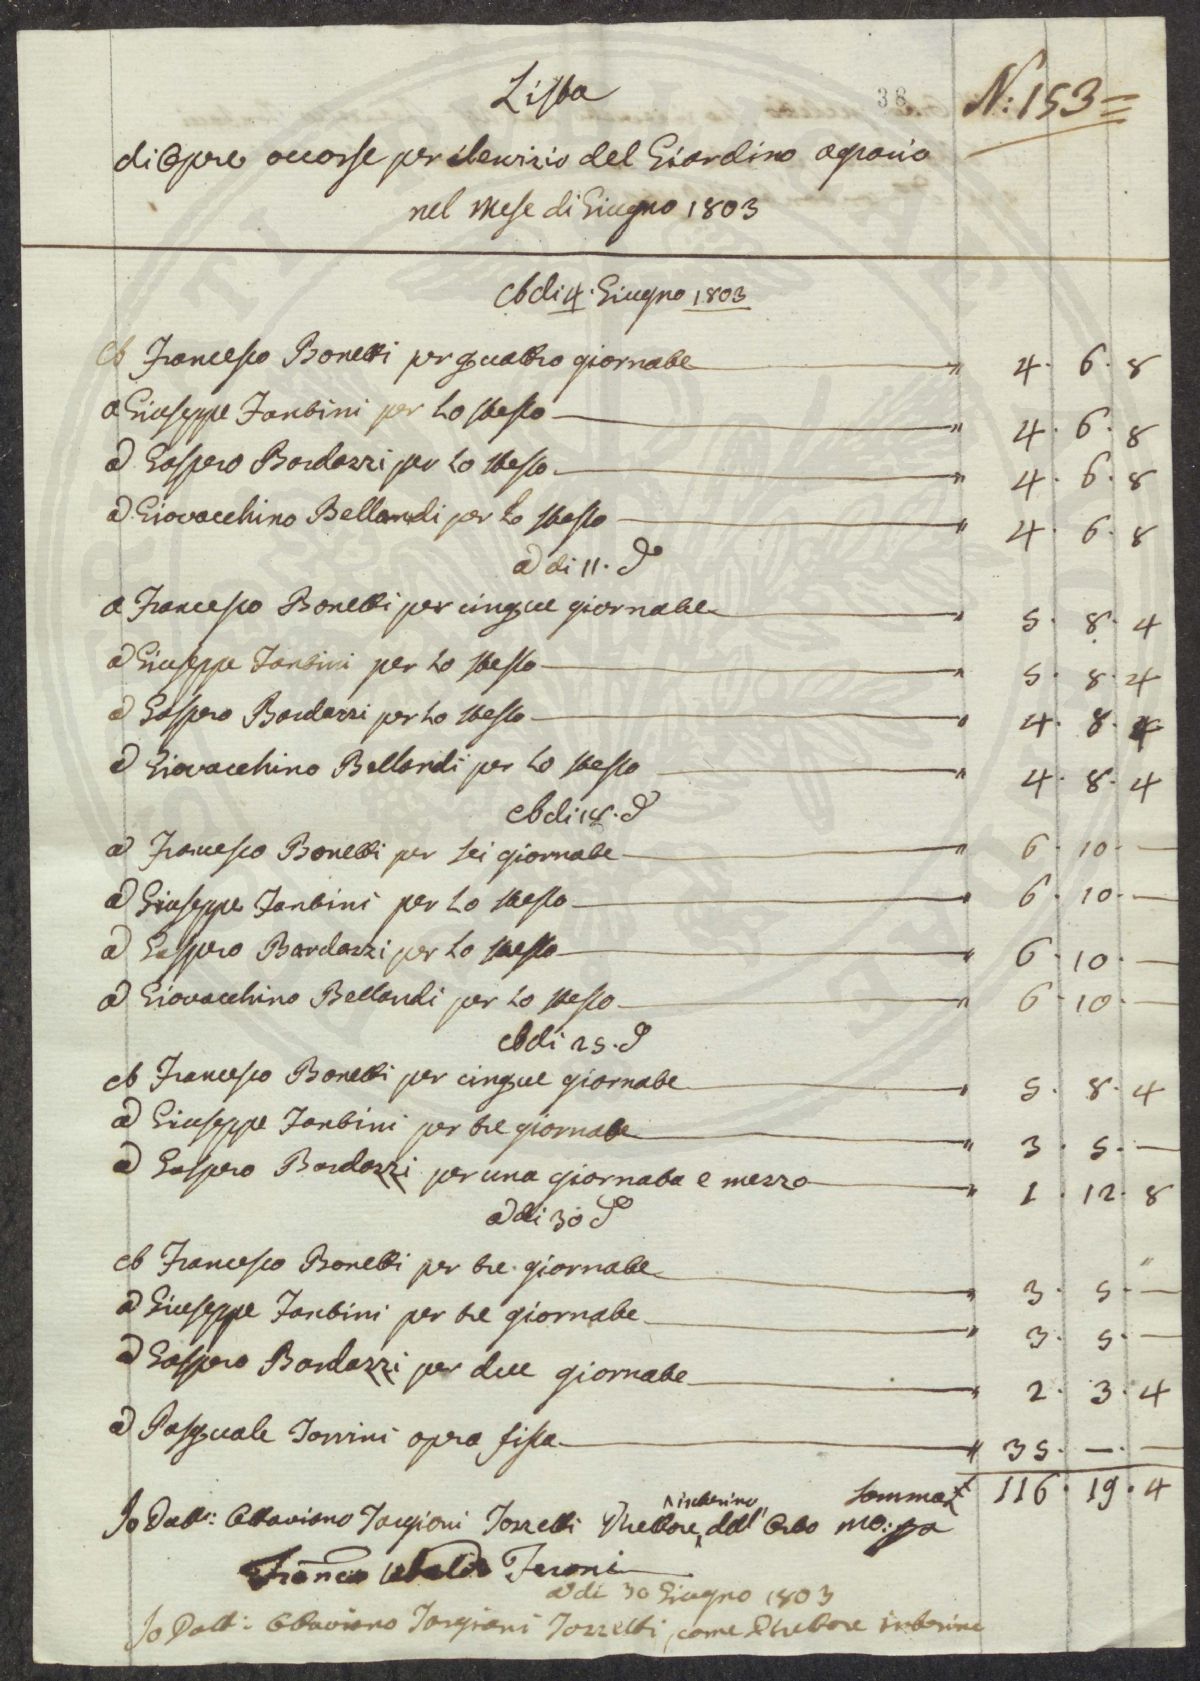 38
N: 153=
Lista
di Opere occorse per il servizio del Giardino agrario
nel mese di Giugno 1803
A dì 4. Giugno 1803
A Francesco Bonetti per quattro giornate " 4. 6. 8
a Giuseppe Tantini per Lo stesso " 4. 6. 8
a Gaspero Bardazzi per Lo stesso " 4. 6. 8
a Giovacchino Bellandi per Lo stesso " 4. 6. 8
a dì 11. do
a Francesco Bonetti per cinque giornate " 5. 8. 4
a Giuseppe Tantini per Lo stesso " 5. 8. 4
a Gaspero Bardazzi per Lo stesso " 4. 8. 4
a Giovacchino Bellandi per Lo stesso " 4. 8. 4
A dì 18. do
a Francesco Bonetti per sei giornate " 6. 10. —
a Giuseppe Tantini per Lo stesso " 6. 10. —
a Gaspero Bardazzi per Lo stesso " 6. 10. —
a Giovacchino Bellandi per Lo stesso " 6. 10. —
A dì 25. do
A Francesco Bonetti per cinque giornate " 5. 8. 4
a Giuseppe Tantini per tre giornate " 3. 5. —
a Gaspero Bardazzi per una giornata e mezzo " 1. 12. 8
a dì 30 do
A Francesco Bonetti per tre giornate " 3. 5. —
a Giuseppe Tantini per tre giornate " 3. 5. —
a Gaspero Bardazzi per due giornate " 2. 3. 4
a Pasquale Torrini opra fissa " 35. — . —
Somma £ 116. 19. 4
Io Dott: Ottaviano Targioni Tozzetti Direttore interino dell' Orto mo: pa
Franco Ubaldo Feroni
a dì 30 Giugno 1803
Io Dott: Ottaviano Targioni Tozzetti, come Direttore interino